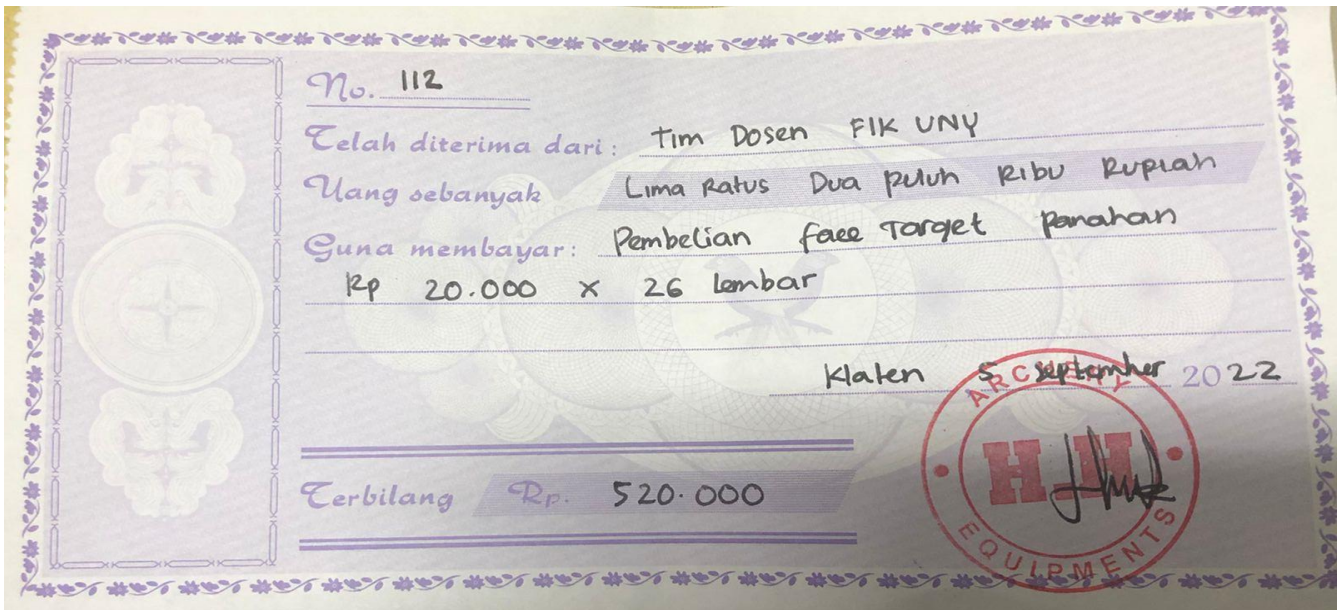 No. 112
Telah diterima dari: Tim Dosen FIK UNY
Uang sebanyak Lima Ratus Dua Puluh Ribu Rupiah
Guna membayar: Pembelian face Target Panahan
Rp 20.000 x 26 Lembar
Klaten 5 September 2022
Terbilang Rp. 520.000
ARCHERY
HH
EQUIPMENTS